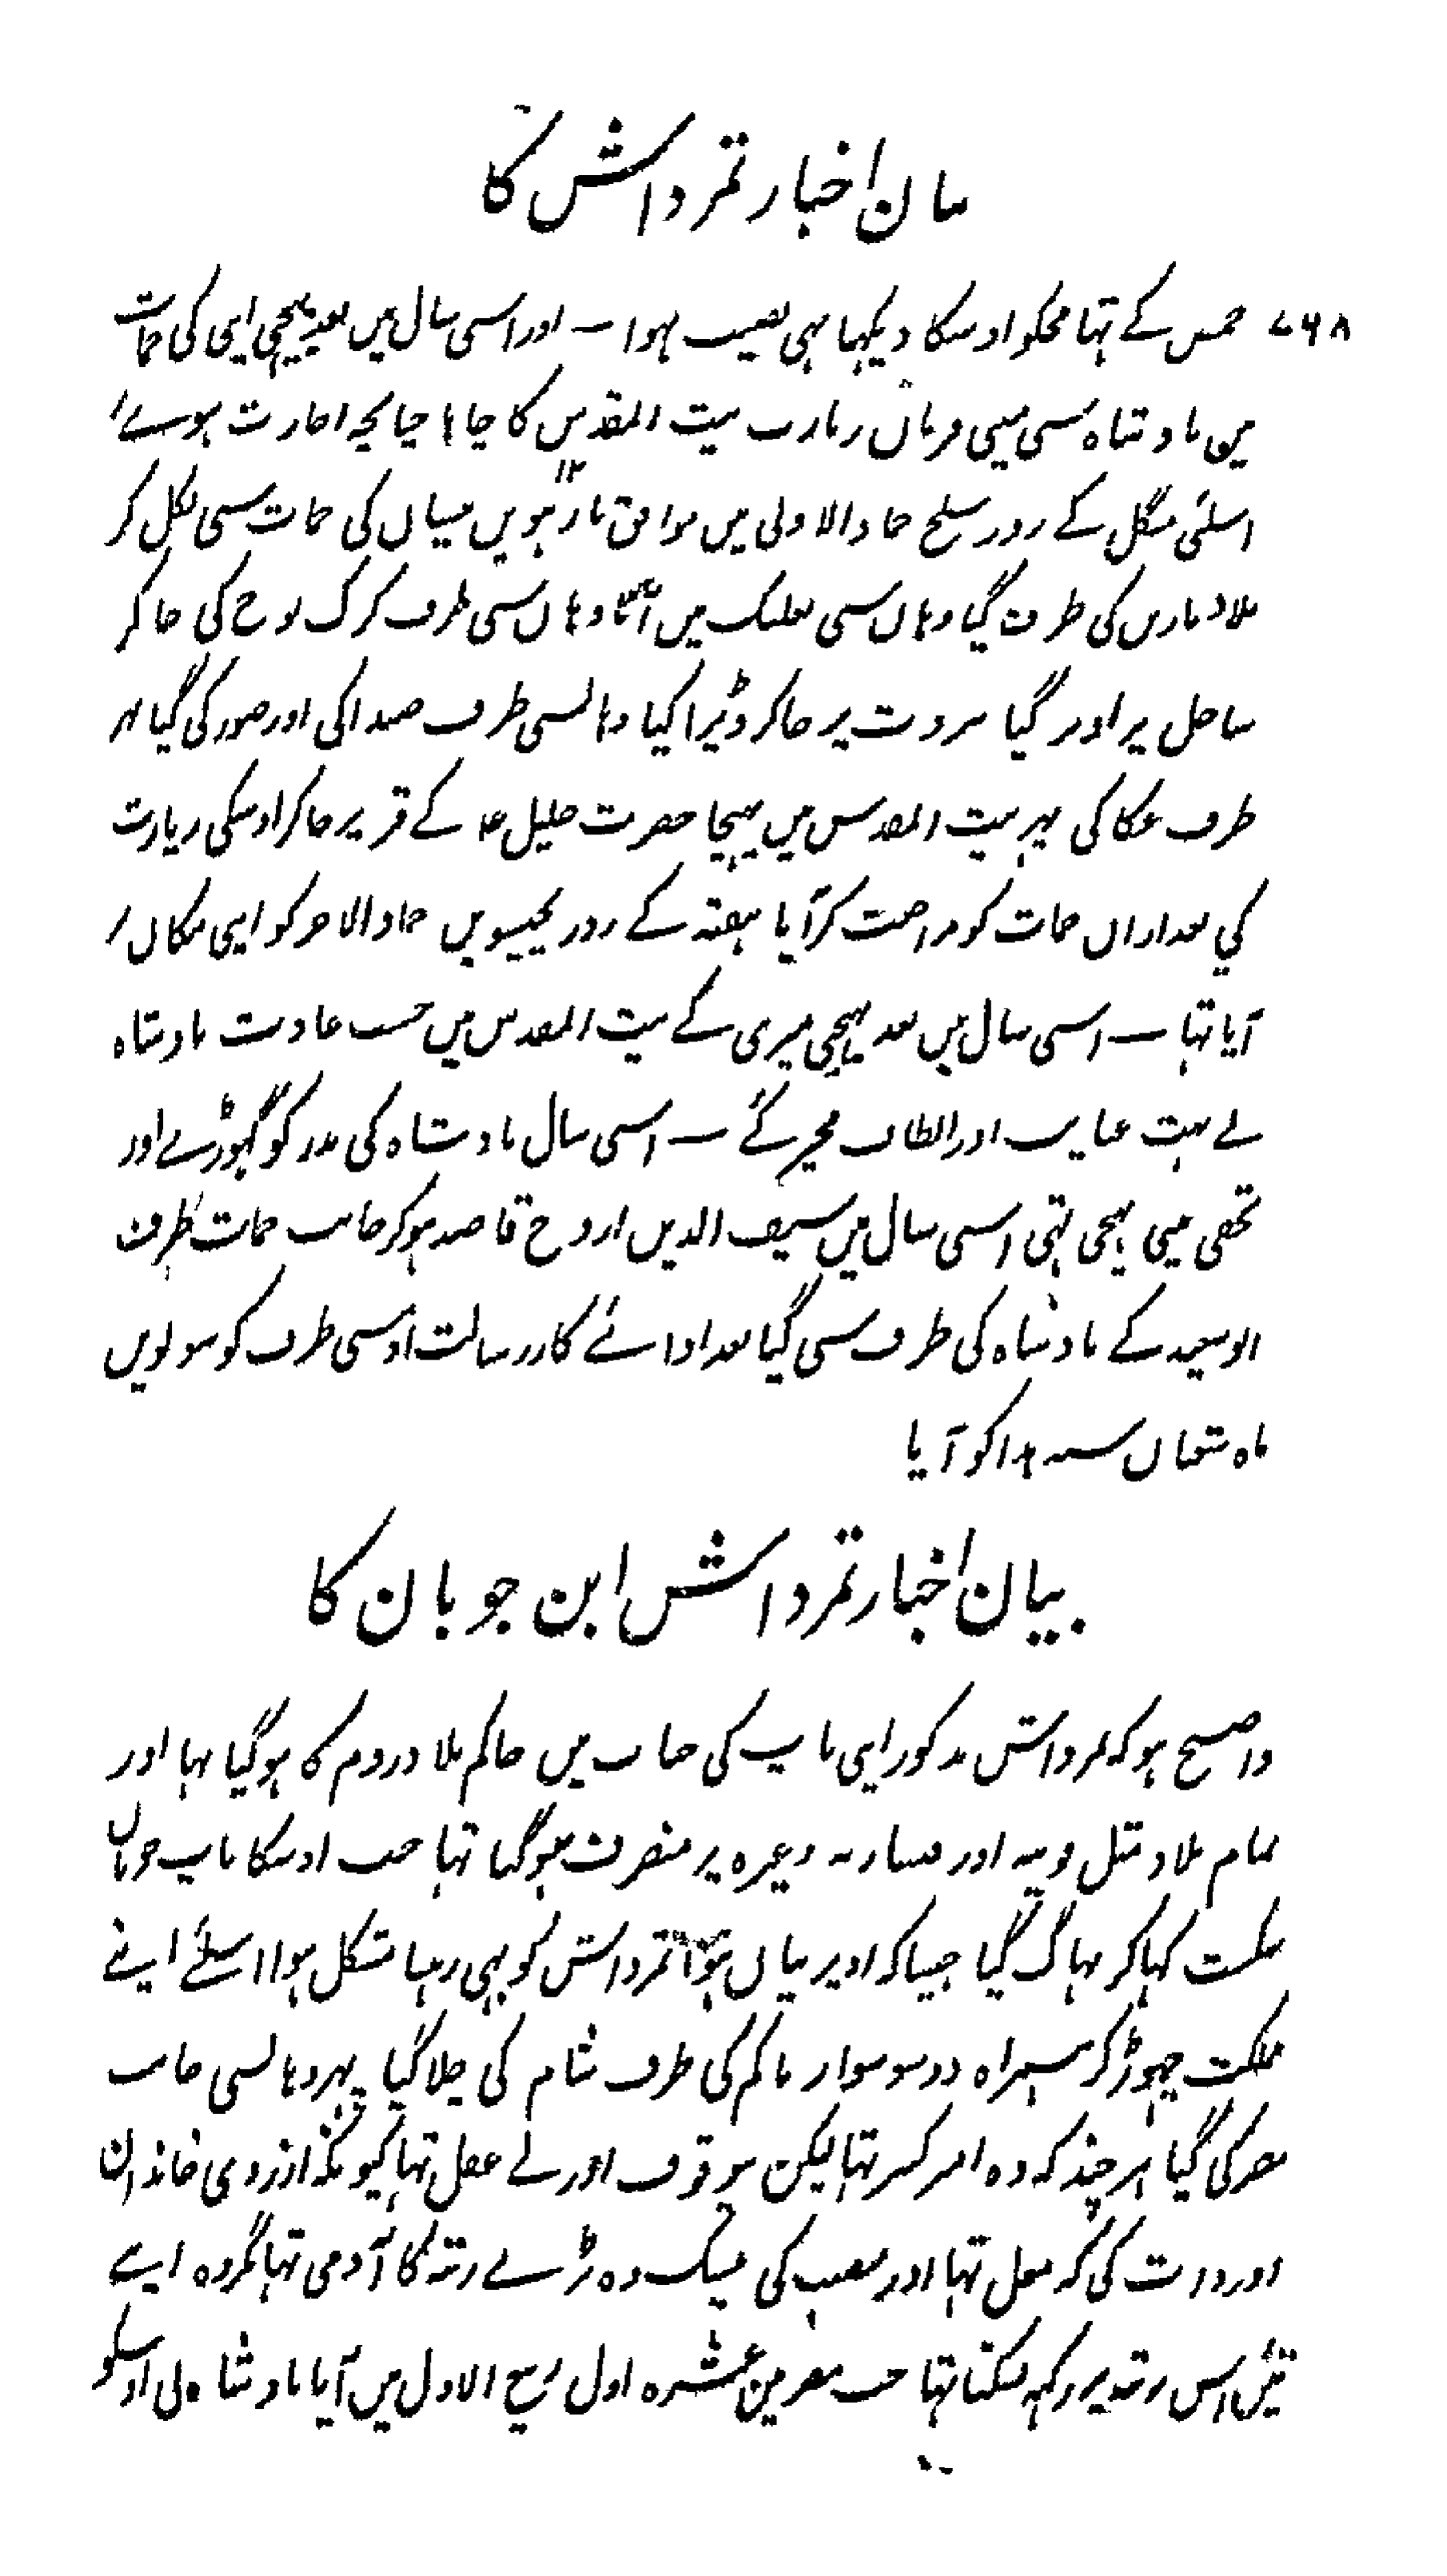 بیان اخبار تمرداش کا
۷۶۸ حمص کے تہا مجکو اوسکا دیکہا بہی نصیب ہوا — اور اسی سال میں بعد پہچنی اپنی کی حمات
میں بادشاہ سی مینی فرمان زیارت بیت المقدس کا چاہا چنانچہ اجازت ہوئے
اسلئی منگل کے روز سلخ جماد الاولی میں موافق بارہویں نیسان کی حمات سی نکل کر
بلاد بارین کی طرف گیا وہاں سی بعلبک میں آیا وہاں سی طرف کرک نوح کی جا کر
ساحل پر اوتر گیا بیروت پر جا کر ڈیرا کیا وہانسی طرف صیدا کی اور صور کی گیا پہر
طرف عکا کی پہر بیت المقدس میں پہنچا حضرت خلیل ع کے قبر پر جا کر اوسکی زیارت
کی بعد ازاں حمات کو مراجعت کر آیا ہفتہ کے روز پچیسویں جماد الاخر کو اپنی مکان پر
آیا تہا — اسی سال میں بعد پہچنی میری کے بیت المقدس میں حسب عادت بادشاہ
نے بہت عنایت اور الطاف مجہپر کئے — اسی سال بادشاہ کی نذر کو گہوڑے اور
تحفی مینی بہیجی تہی اسی سال میں سیف الدین اروج قاصد ہو کر جانب حمات طرف
ابو سعید کے بادشاہ کی طرف سی گیا بعد ادائے کار رسالت اوسی طرف کو سولویں
ماہ شعبان سنہ ہذا کو آیا
بیان اخبار تمرداش ابن جوبان کا
واضح ہو کہ تمرداش مذکور اپنی باپ کی حیات میں حاکم بلاد روم کا ہو گیا تہا اور
تمام بلاد مثل قونیہ اور قیساریہ وغیرہ پر متصرف ہوگیا تہا جب اوسکا باپ جوبان
شکست کہا کر بہاگ گیا جیسا کہ اوپر بیان ہوا تمرداش کو بہی رہنا مشکل ہوا اسلئے اپنے
مملکت چہوڑ کر ہمراہ دوسو سوار حاکم کی طرف شام کی چلا گیا پہر وہانسی جانب
مصر کی گیا ہر چند کہ وہ امیر کبیر تہا لیکن بیوقوف اور بے عقل تہا کیونکہ ازروی خاندان
اور ذات کی کہ مغل تہا اور منصب کی بیشک وہ بڑے رتبہ کا آدمی تہا مگر وہ اپنے
تئیں اس رتبہ پر رکہہ سکتا تہا جب مصر میں عشرہ اول ربیع الاول میں آیا بادشاہ نی اوسکو